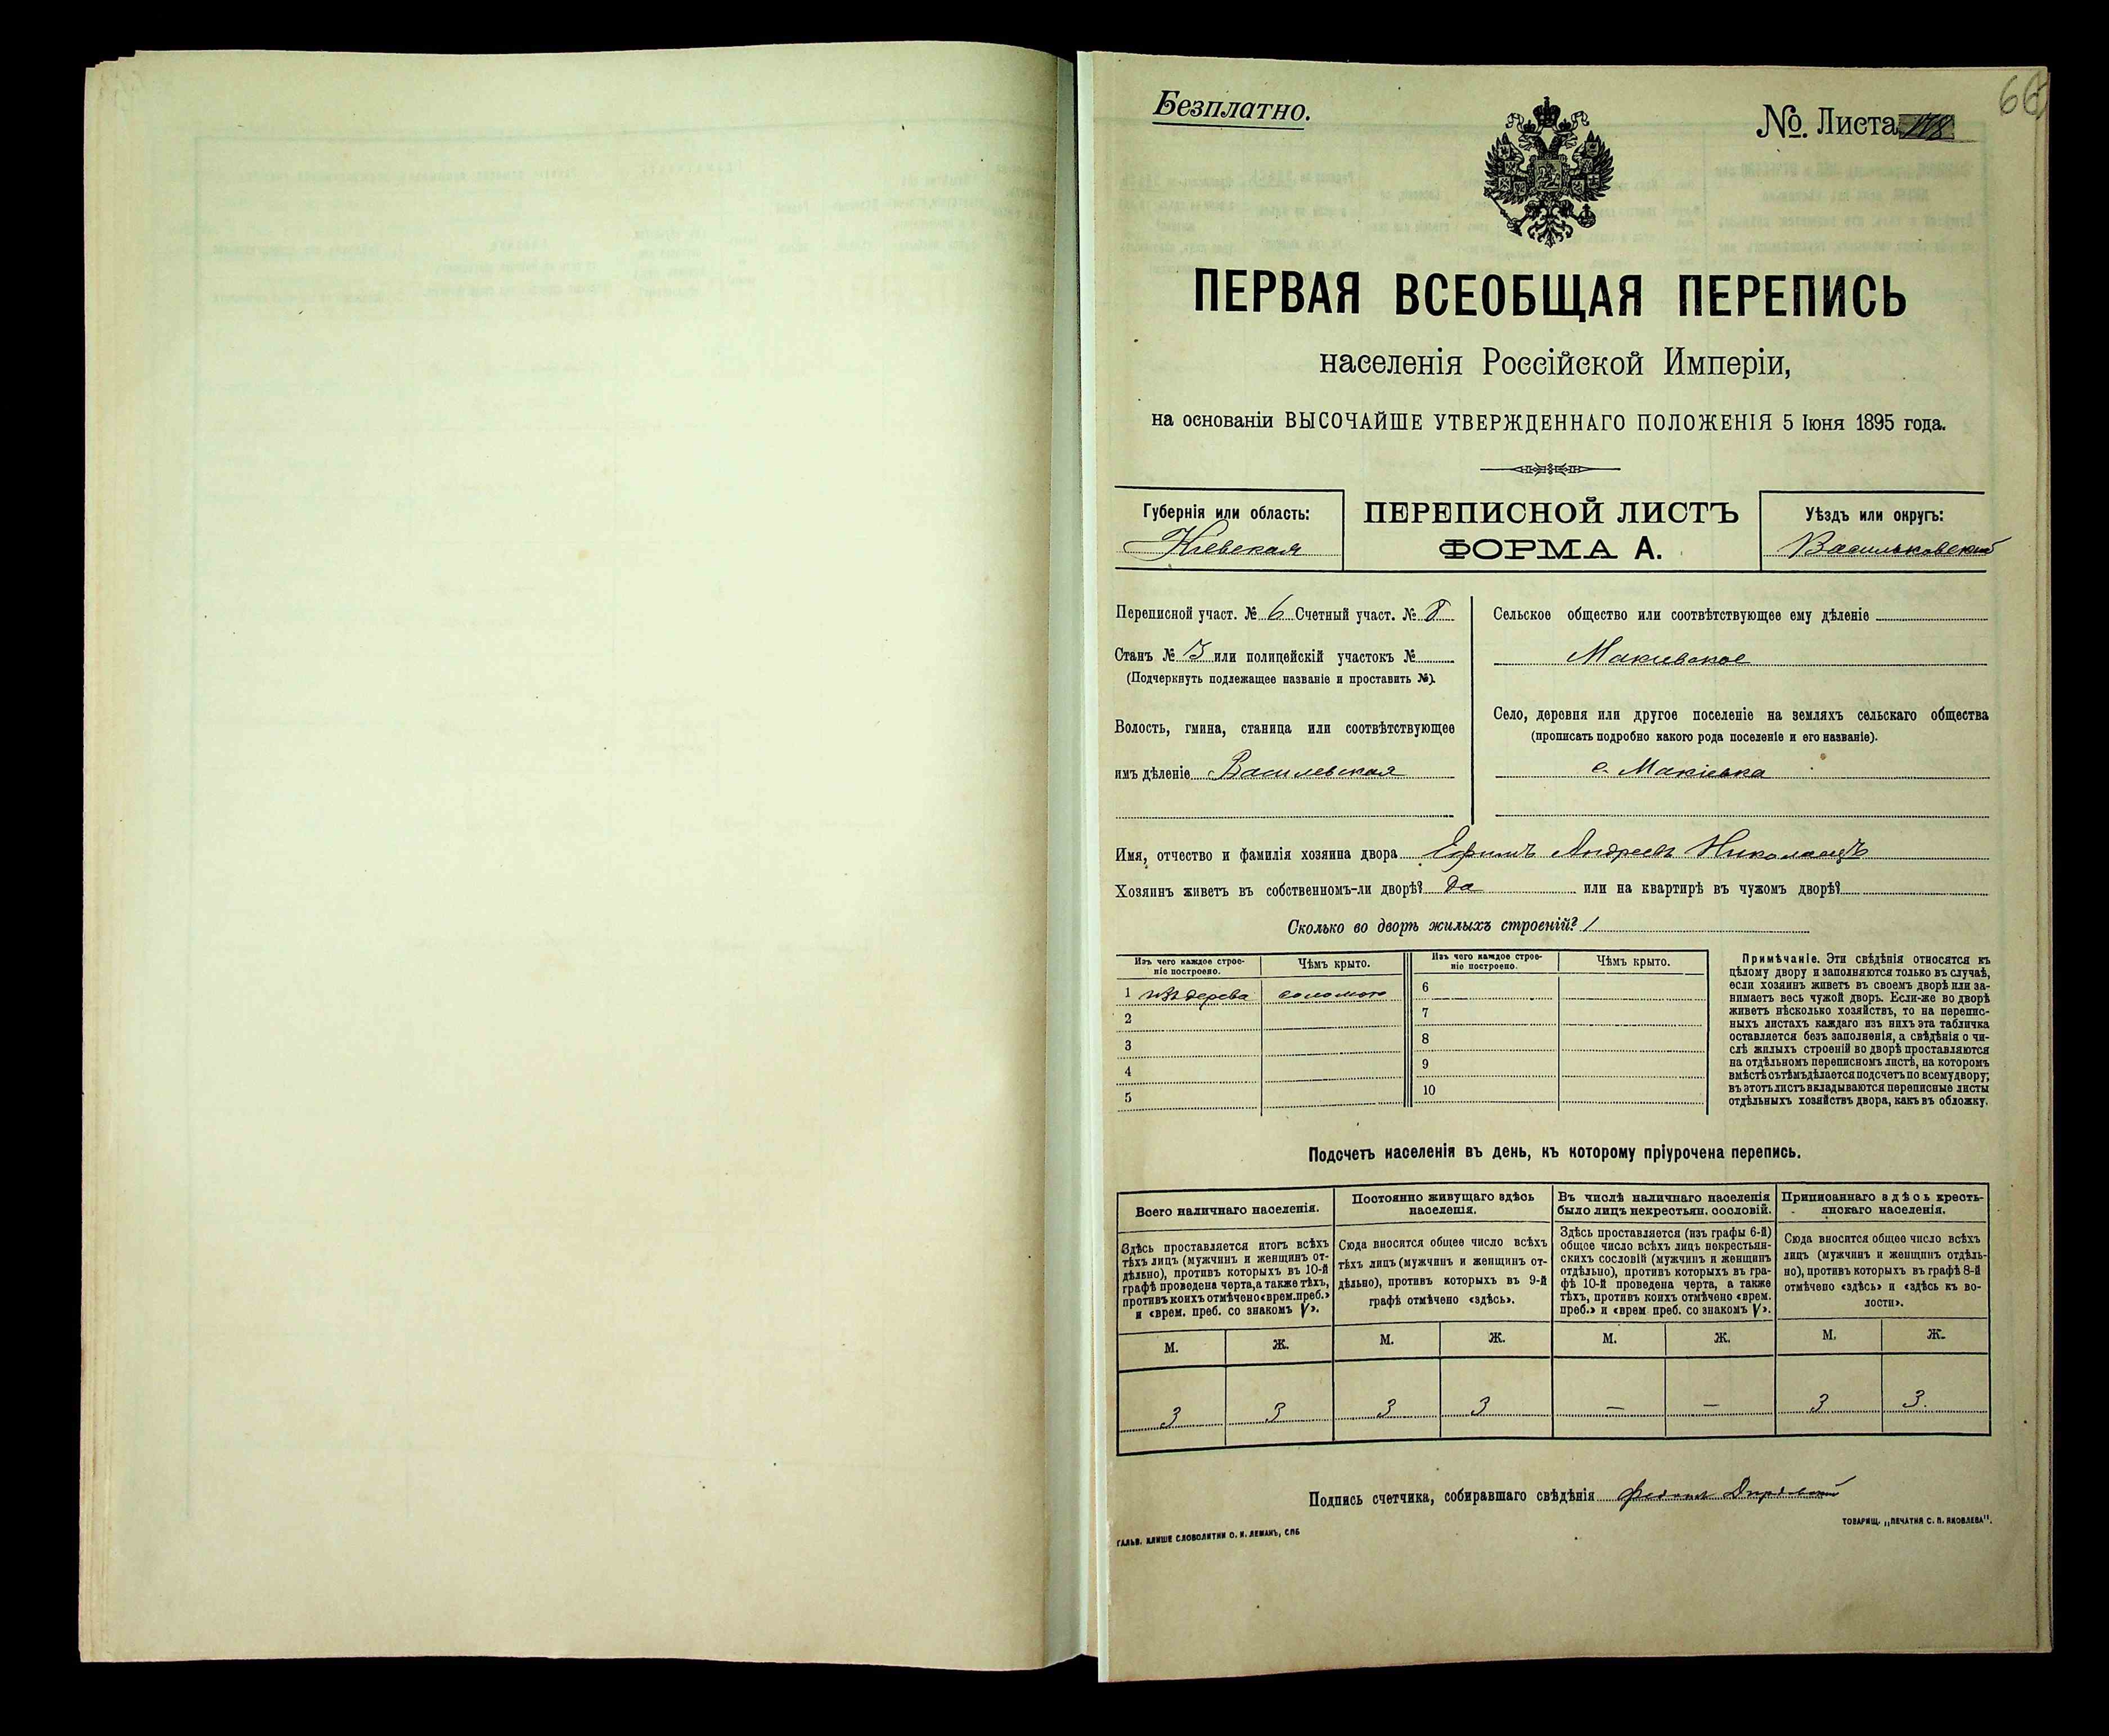 Безплатно.
№. Листа 178
66
ПЕРВАЯ ВСЕОБЩАЯ ПЕРЕПИСЬ
населенія Россійской Имперіи,
на основаніи ВЫСОЧАЙШЕ УТВЕРЖДЕННАГО ПОЛОЖЕНІЯ 5 Іюня 1895 года.
Губернія или область:
Кіевская
ПЕРЕПИСНОЙ ЛИСТЪ
ФОРМА А.
Уѣздъ или округъ:
Васильковскій
Переписной участ. № 6 Счетный участ. № 8
Станъ № 3 или полицейскій участокъ №
(Подчеркнуть подлежащее названіе и проставить №).
Волость, гмина, станица или соотвѣтствующее
имъ дѣленіе Василевская
Сельское общество или соотвѣтствующее ему дѣленіе
Макіевское
Село, деревня или другое поселеніе на земляхъ сельскаго общества
(прописать подробно какого рода поселеніе и его названіе).
с. Макіевка
Имя, отчество и фамилія хозяина двора Ефимъ Андреевъ Николаецъ
Хозяинъ живетъ въ собственномъ-ли дворѣ? да или на квартирѣ въ чужомъ дворѣ?
Сколько во дворѣ жилыхъ строеній? 1
Изъ чего каждое строе-
ніе построено.
Чѣмъ крыто.
Изъ чего каждое строе-
ніе построено.
Чѣмъ крыто.
1 изъ дерева соломою 6
2 7
3 8
4 9
5 10
Примѣчаніе. Эти свѣдѣнія относятся къ
цѣлому двору и заполняются только въ случаѣ,
если хозяинъ живетъ въ своемъ дворѣ или за-
нимаетъ весь чужой дворъ. Если-же во дворѣ
живетъ нѣсколько хозяйствъ, то на перепис-
ныхъ листахъ каждаго изъ нихъ эта табличка
оставляется безъ заполненія, а свѣдѣнія о чи-
слѣ жилыхъ строеній во дворѣ проставляются
на отдѣльномъ переписномъ листѣ, на которомъ
вмѣстѣ съ тѣмъ дѣлается подсчетъ по всему двору;
въ этотъ листъ вкладываются переписные листы
отдѣльныхъ хозяйствъ двора, какъ въ обложку.
Подсчетъ населенія въ день, къ которому пріурочена перепись.
Всего наличнаго населенія.
Здѣсь проставляется итогъ всѣхъ
тѣхъ лицъ (мужчинъ и женщинъ от-
дѣльно), противъ которыхъ въ 10-й
графѣ проведена черта, а также тѣхъ,
противъ коихъ отмѣчено «врем. преб.»
и «врем. преб. со знакомъ V».
Постоянно живущаго здѣсь
населенія.
Сюда вносится общее число всѣхъ
тѣхъ лицъ (мужчинъ и женщинъ от-
дѣльно), противъ которыхъ въ 9-й
графѣ отмѣчено «здѣсь».
Въ числѣ наличнаго населенія
было лицъ некрестьян. сословій.
Здѣсь проставляется (изъ графы 6-й)
общее число всѣхъ лицъ некрестьян-
скихъ сословій (мужчинъ и женщинъ
отдѣльно), противъ которыхъ въ гра-
фѣ 10-й проведена черта, а также
тѣхъ, противъ коихъ отмѣчено «врем.
преб.» и «врем преб. со знакомъ V».
Приписаннаго здѣсь кресть-
янскаго населенія.
Сюда вносится общее число всѣхъ
лицъ (мужчинъ и женщинъ отдѣль-
но), противъ которыхъ въ графѣ 8-й
отмѣчено «здѣсь» и «здѣсь къ во-
лости».
М. Ж. М. Ж. М. Ж. М. Ж.
3 3 3 3 — — 3 3.
Подпись счетчика, собиравшаго свѣдѣнія
ГАЛЬВ. КЛИШЕ СЛОВОЛИТНИ О. И. ЛЕМАНЪ, СПБ
ТОВАРИЩ. „ПЕЧАТНЯ С. П. ЯКОВЛЕВА".